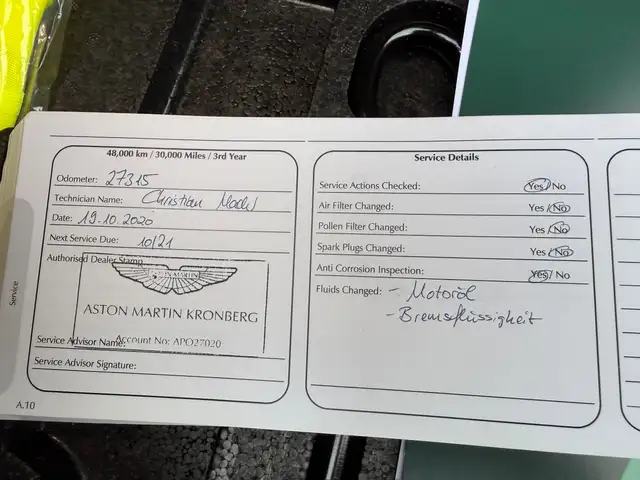 48,000 km / 30,000 Miles / 3rd Year
Odometer: 27315
Technician Name: Christian
Date: 19.10.2020
Next Service Due: 10/21
Authorised Dealer Stamp
ASTON MARTIN
ASTON MARTIN KRONBERG
Account No: APO27020
Service Advisor Name:
Service Advisor Signature:
Service Details
Service Actions Checked: Yes/No
Air Filter Changed: Yes/No
Pollen Filter Changed: Yes/No
Spark Plugs Changed: Yes/No
Anti Corrosion Inspection: Yes/No
Fluids Changed: - Motoröl
- Bremsflüssigkeit
Service
A.10